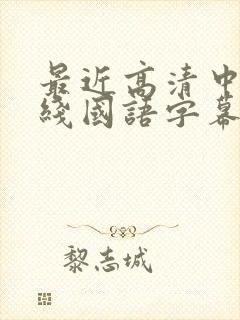 最近高清中
綫國語字幕
黎志城